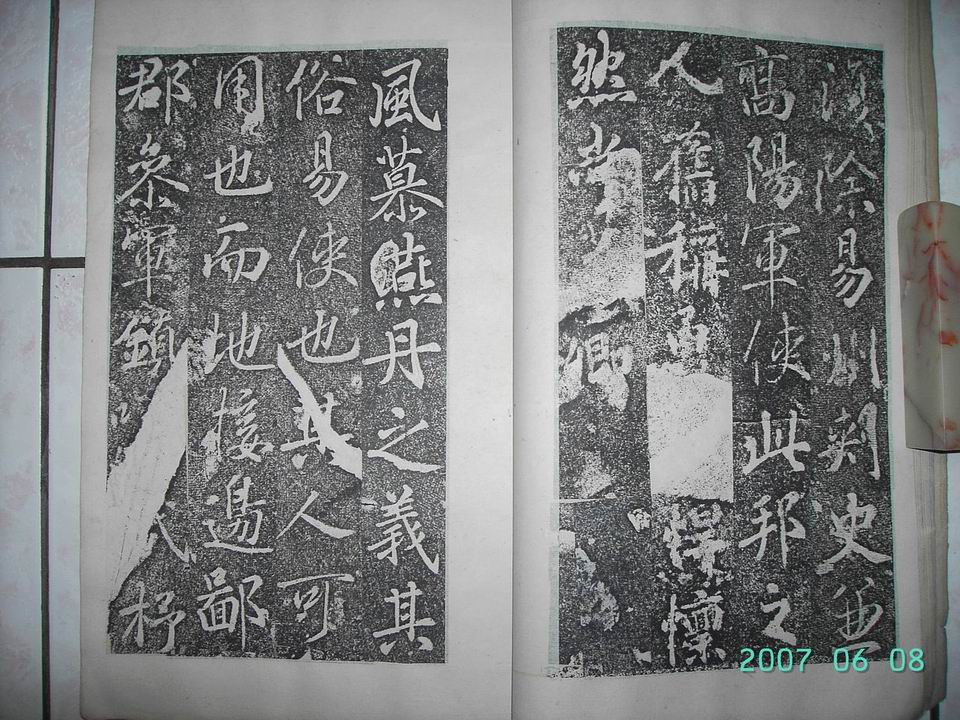 除易州刾史兼
高陽軍使此邦之
人舊稱勇悍懍
然尚卿
風慕燕丹之義其
俗易使也其人可
用也而地接邊鄙
郡叅軍鎮杼
2007 06 08